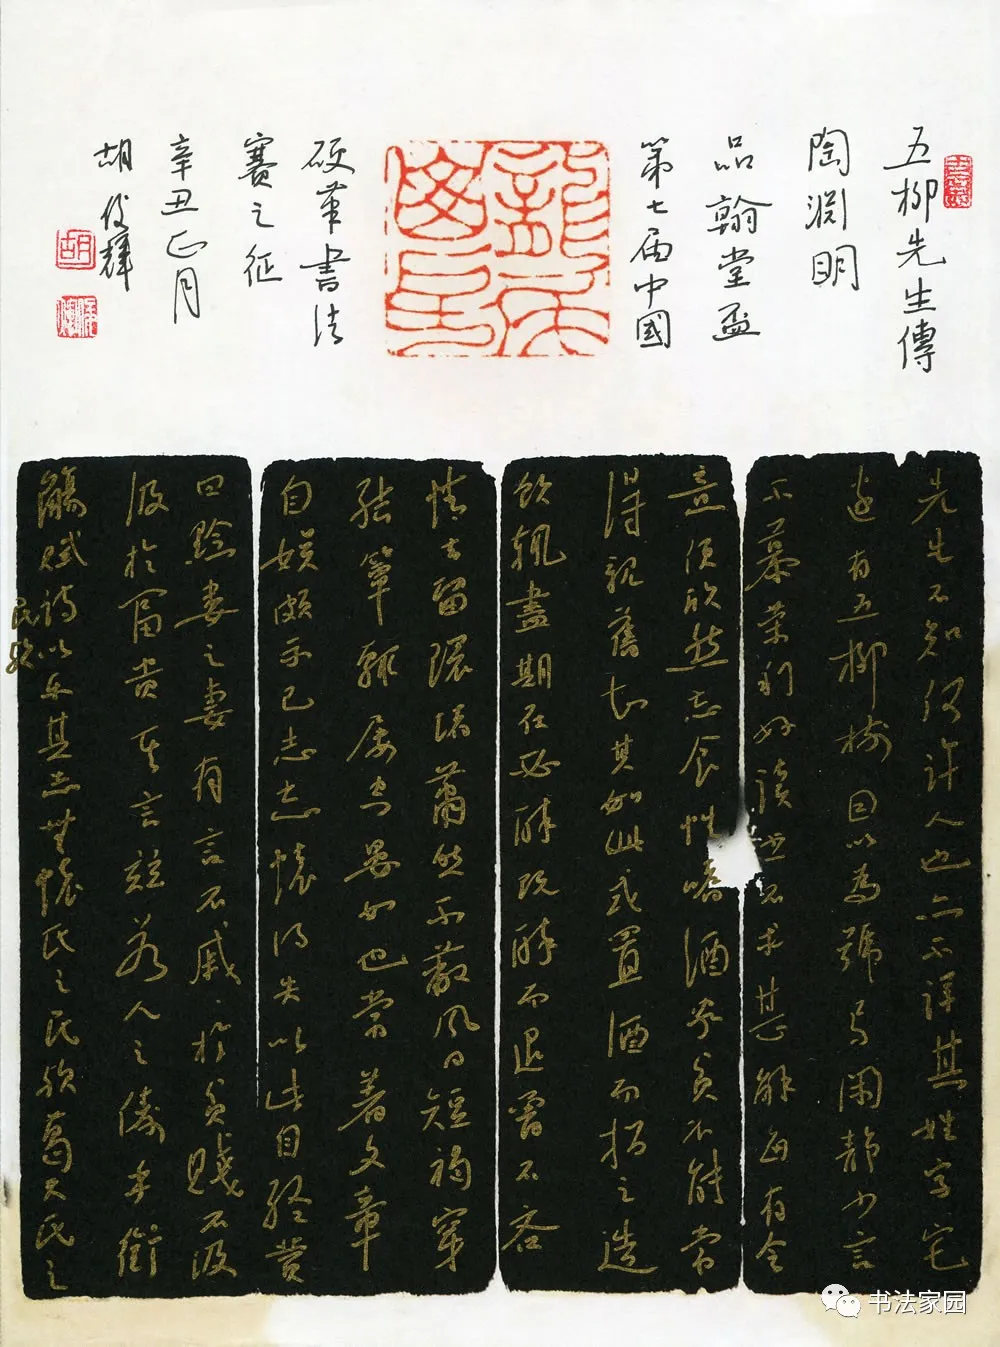 五柳先生傳
陶淵明
品翰堂盃
第七届中國
硬筆書法
賽之征
辛丑正月
胡俊輝
胡
先生不知何許人也亦不詳其姓字宅
邊有五柳樹因以為號焉閑靜少言
不慕榮利好讀書不求甚解每有会
意便欣然忘食性嗜酒家貧不能常
得親舊知其如此或置酒而招之造
飲輒盡期在必醉既醉而退曾不吝
情去留環堵蕭然不蔽風日短褐穿
結簞瓢屢空晏如也常著文章
自娱頗示己志忘懷得失以此自終贊
曰黔婁之妻有言不戚戚於貧賤不汲
汲於富貴其言茲若人之儔乎銜
觴賦詩以樂其志無懷氏之民歟葛天氏之
民歟
书法家园